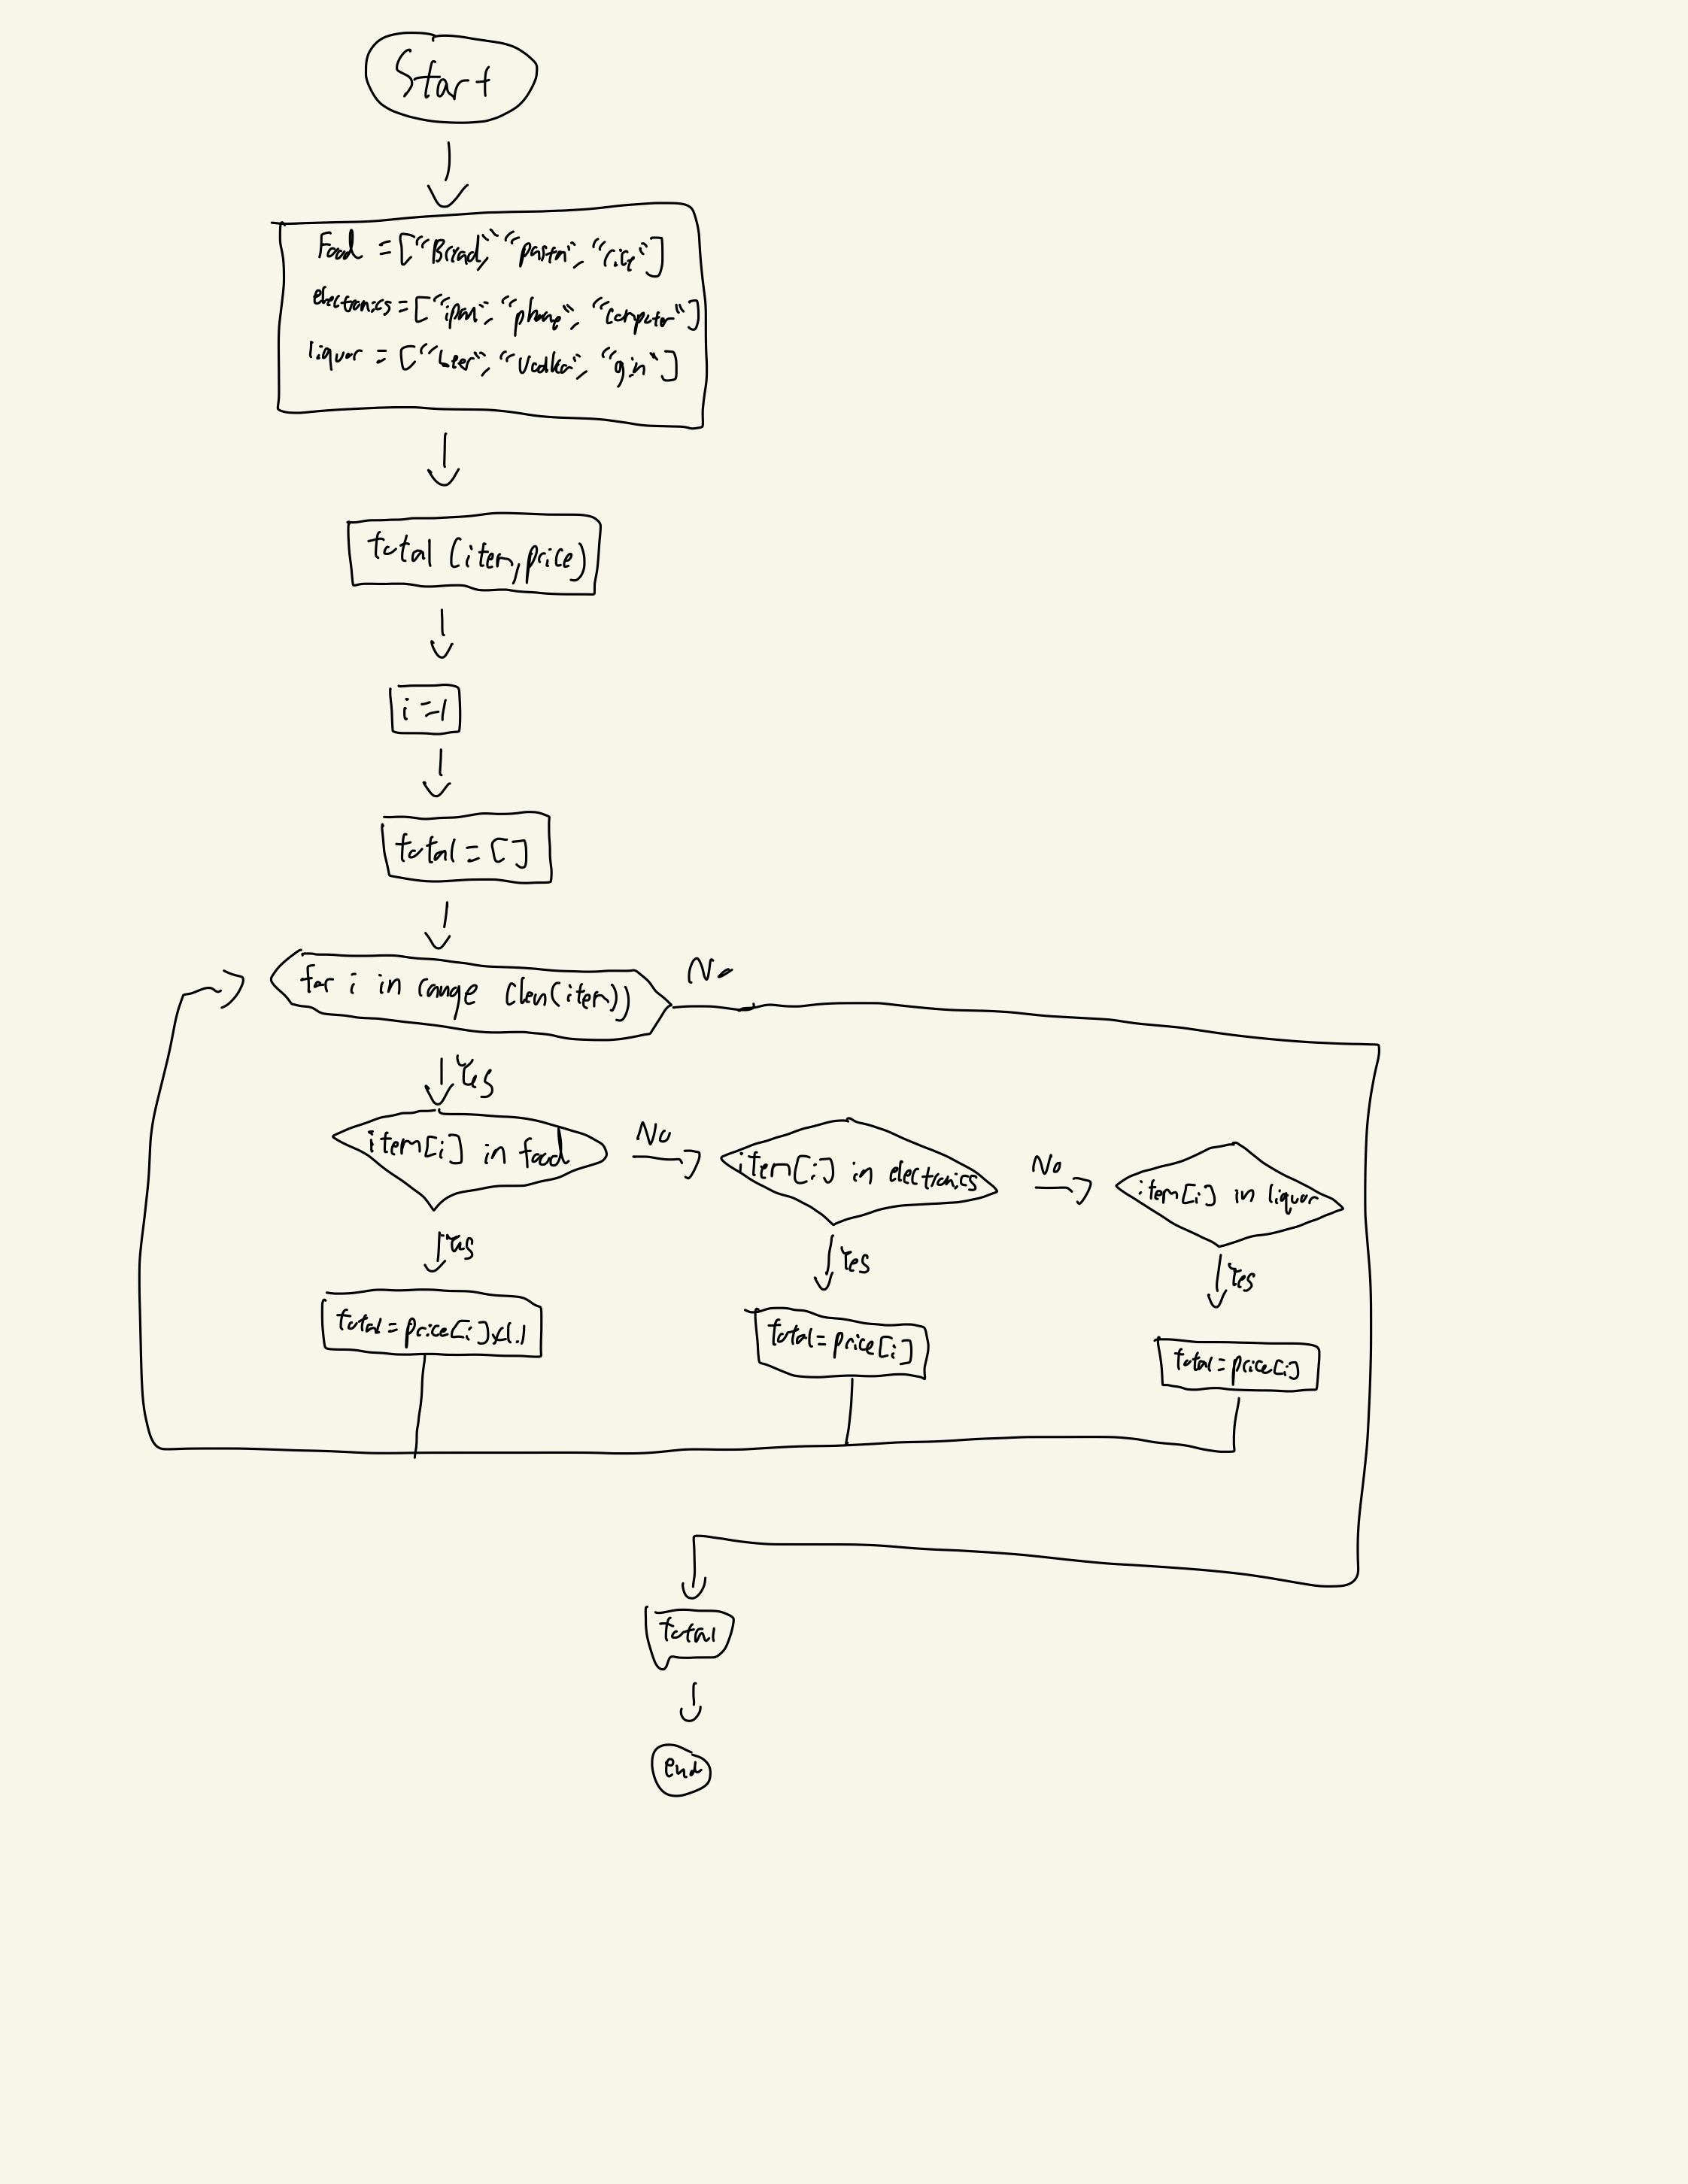 Start
Food = ["Bread", "pasta", "rice"]
electronics = ["ipad", "phone", "computer"]
liquor = ["beer", "Vodka", "gin"]
total (item, price)
i = 1
total = []
for i in range (len(item))
No
Yes
item[i] in food
No
item[i] in electronics
No
item[i] in liquor
Yes
Yes
Yes
total = price[i]x1.1
total = price[i]
total = price[i]
total
end